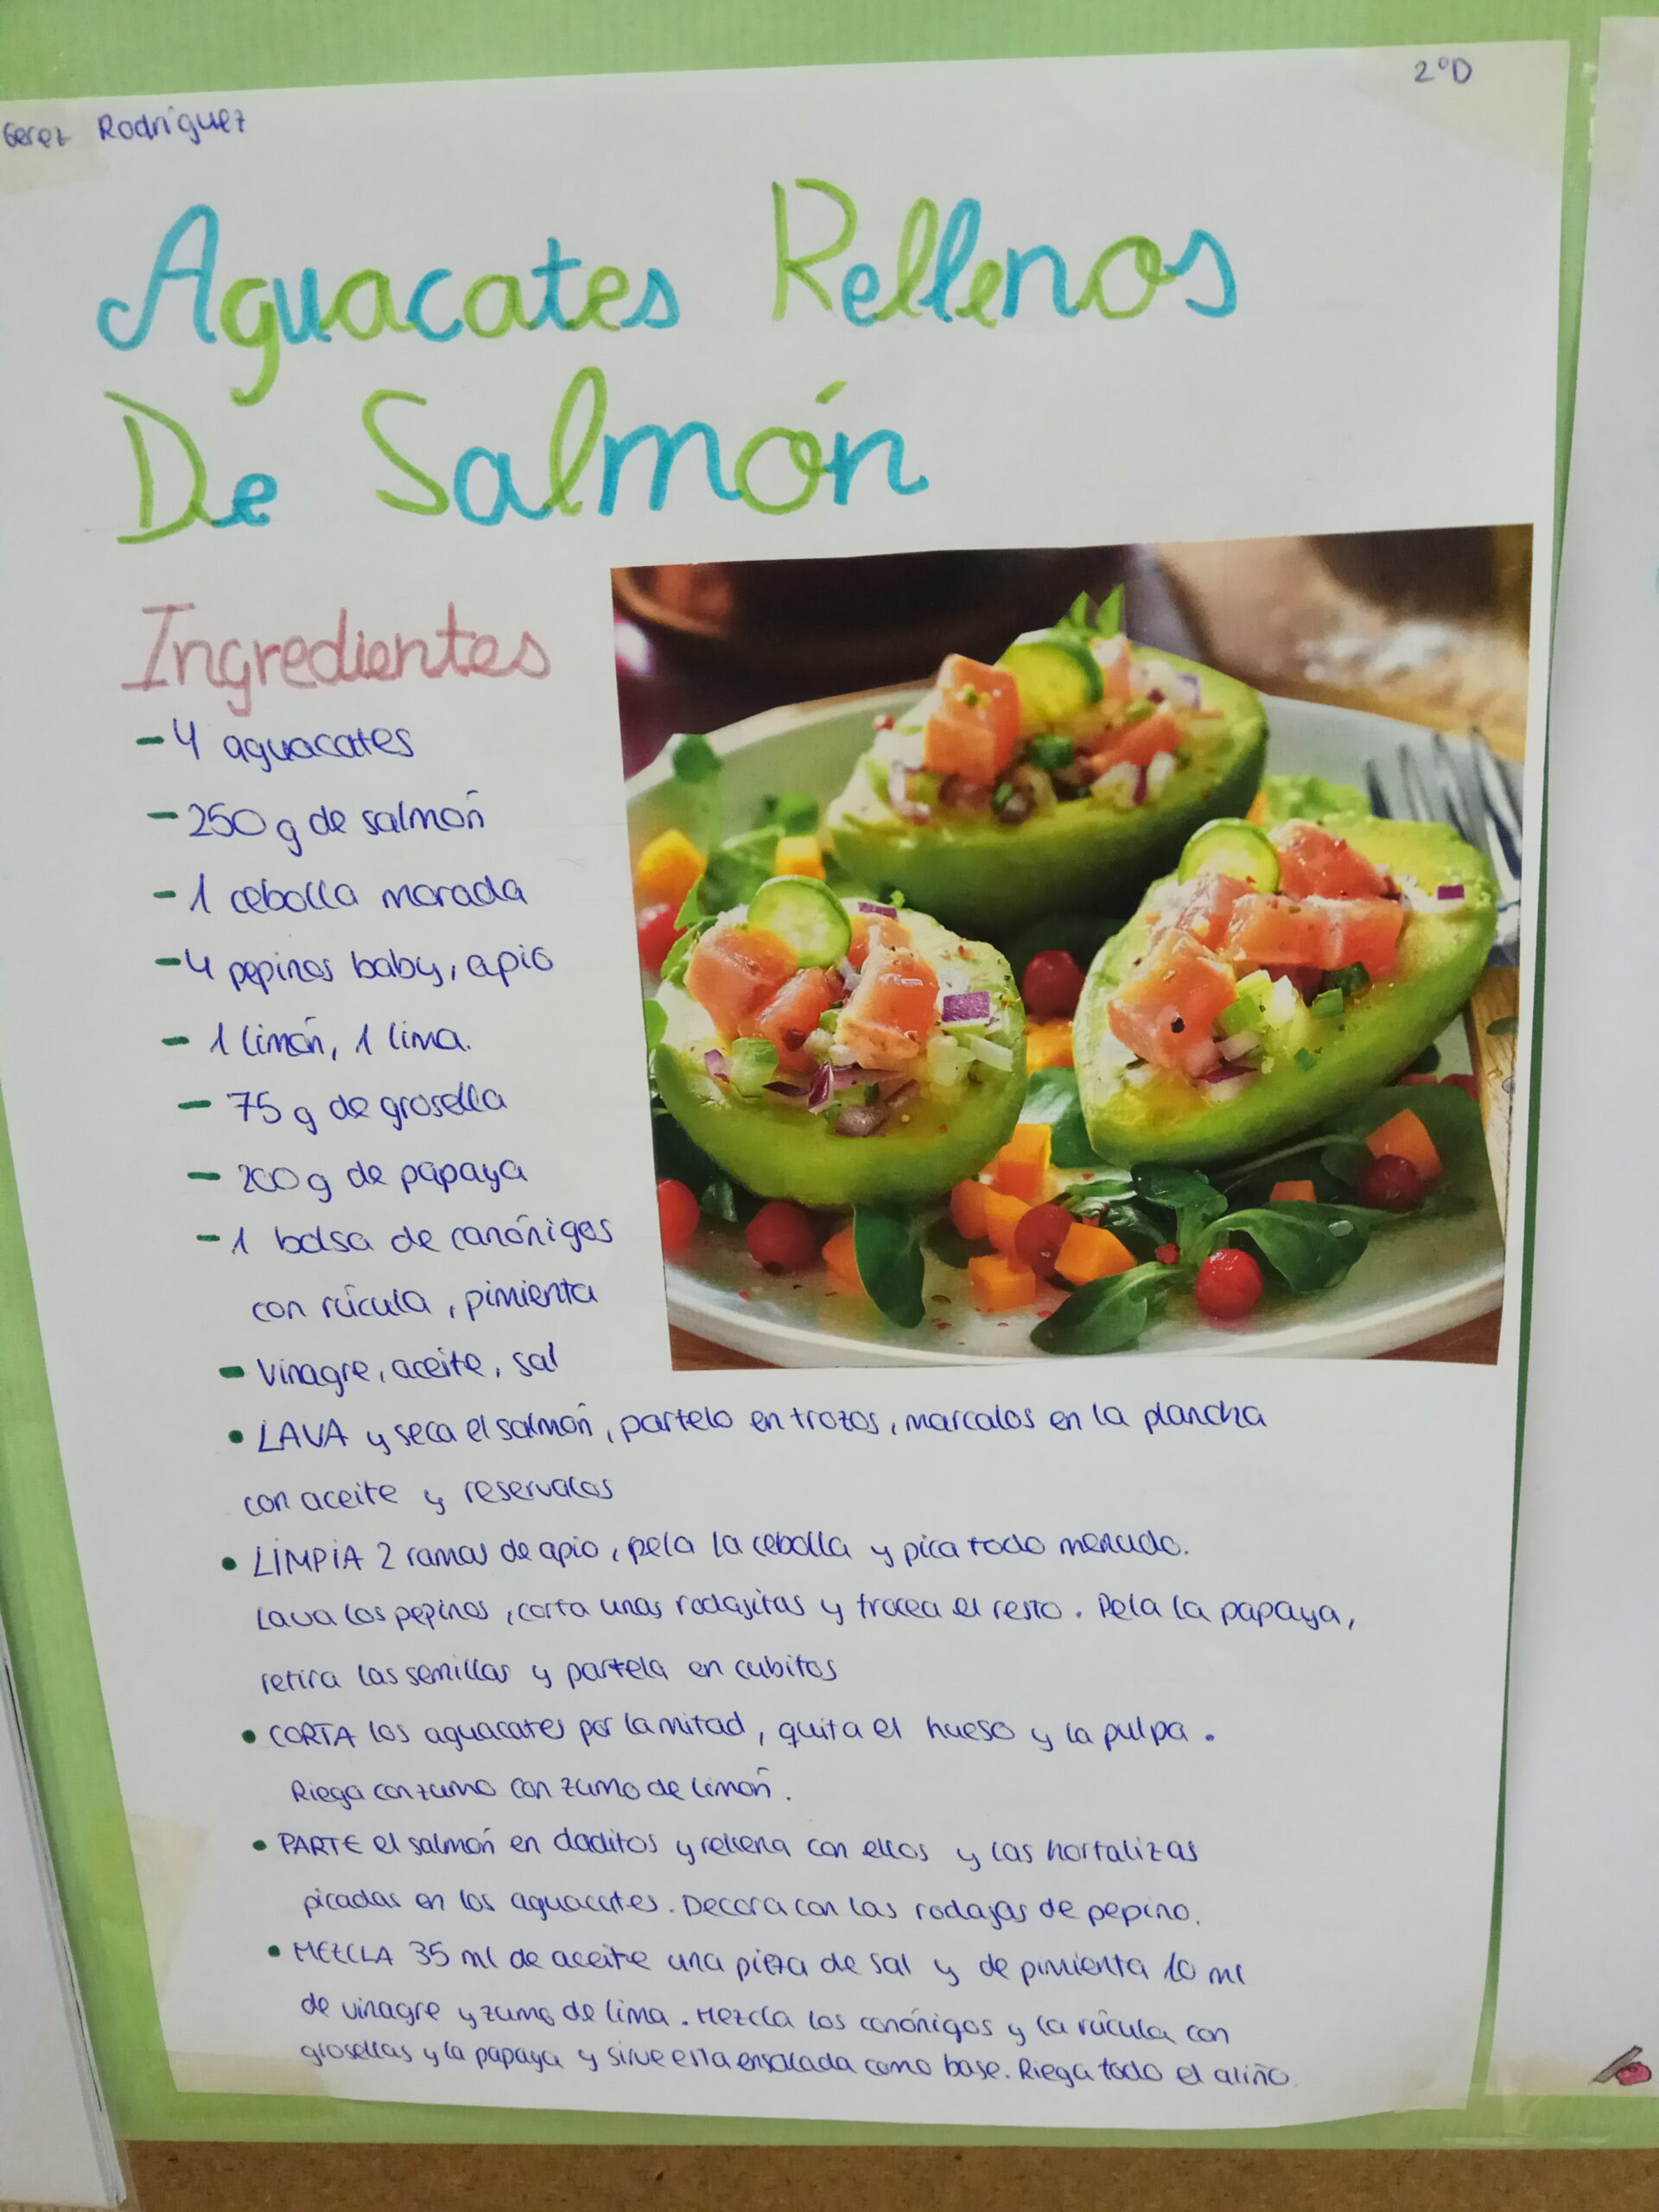 Gerez Rodriguez
2ºD
Aguacates Rellenos
De Salmón
Ingredientes
- 4 aguacates
- 250 g de salmón
- 1 cebolla morada
- 4 pepinos baby, apio
- 1 limón, 1 lima.
- 75 g de grosella
- 200 g de papaya
- 1 bolsa de canónigos
con rúcula, pimienta
- Vinagre, aceite, sal
• LAVA y seca el salmón, partelo en trozos, marcalos en la plancha
con aceite y reservalos
• LIMPIA 2 ramas de apio, pela la cebolla y pica todo menudo.
Lava los pepinos, corta unas rodajitas y trocea el resto. Pela la papaya,
retira las semillas y partela en cubitos
• CORTA los aguacates por la mitad, quita el hueso y la pulpa.
Riega con zumo con zumo de limón.
• PARTE el salmón en daditos y rellena con ellos y las hortalizas
picadas en los aguacates. Decora con las rodajas de pepino.
• MEZCLA 35 ml de aceite una pizza de sal y de pimienta 10 ml
de vinagre y zumo de lima. Mezcla los canónigos y la rúcula con
grosellas y la papaya y sirve esta ensalada como base. Riega todo el aliño.